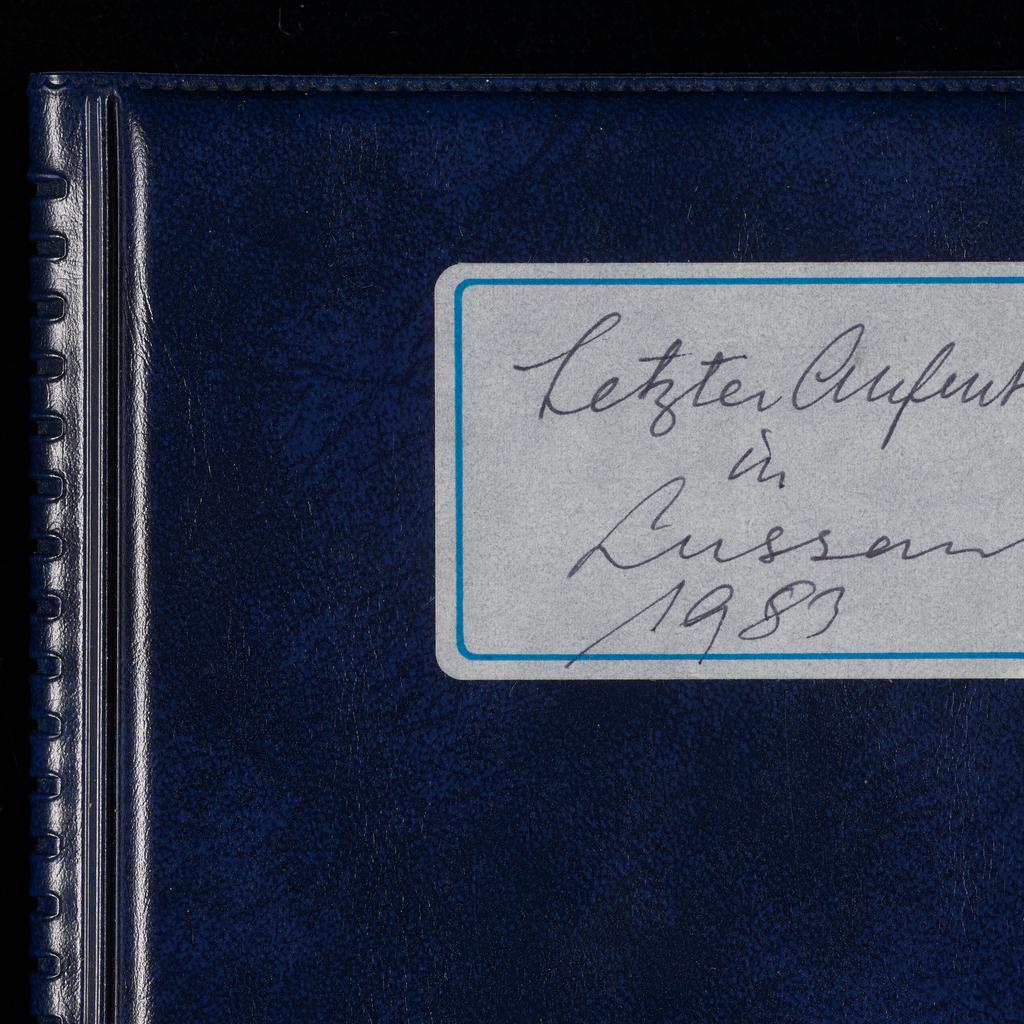 Letzter Aufent
in
Lussan
1983